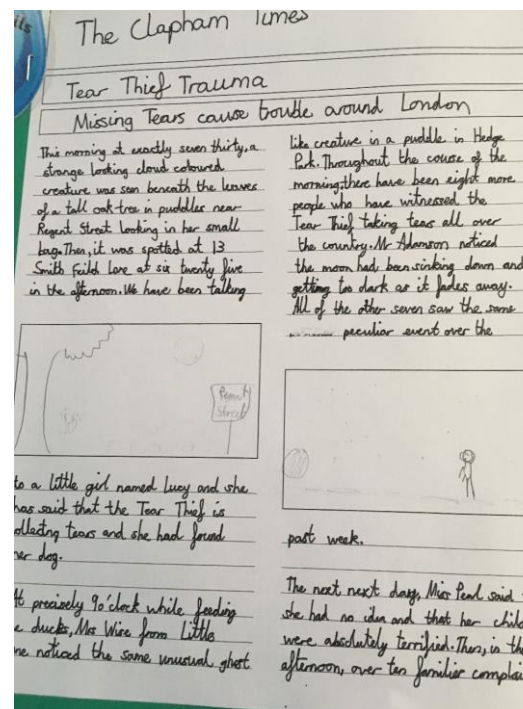 ils
The Clapham Times
Tear Thief Trauma
Missing Tears cause trouble around London
This morning at exactly seven thirty, a
strange looking cloud coloured
creature was seen beneath the leaves
of a tall oak tree in puddles near
Regent Street looking in her small
bag. Then, it was spotted at 13
Smith Feild Lane at six twenty five
in the afternoon. We have been talking
Regent
Street
to a little girl named Lucy and she
has said that the Tear Thief is
ollecting tears and she had found
her dog.
At precisely 9o'clock while feeding
e ducks, Mrs Wire from Little
ne noticed the same unusual ghost
like creature in a puddle in Hedge
Park. Throughout the couse of the
morning, there have been eight more
people who have witnessed the
Tear Thief taking tears all over
the country. Mr Adamson noticed
the moon had been sinking down and
getting too dark as it fades away.
All of the other seven saw the same
peculiar event over the
past week.
The next next day, Miss Pearl said
she had no idea and that her child
were absolutely terrified. Then, in th
afternoon, over ten familier complai